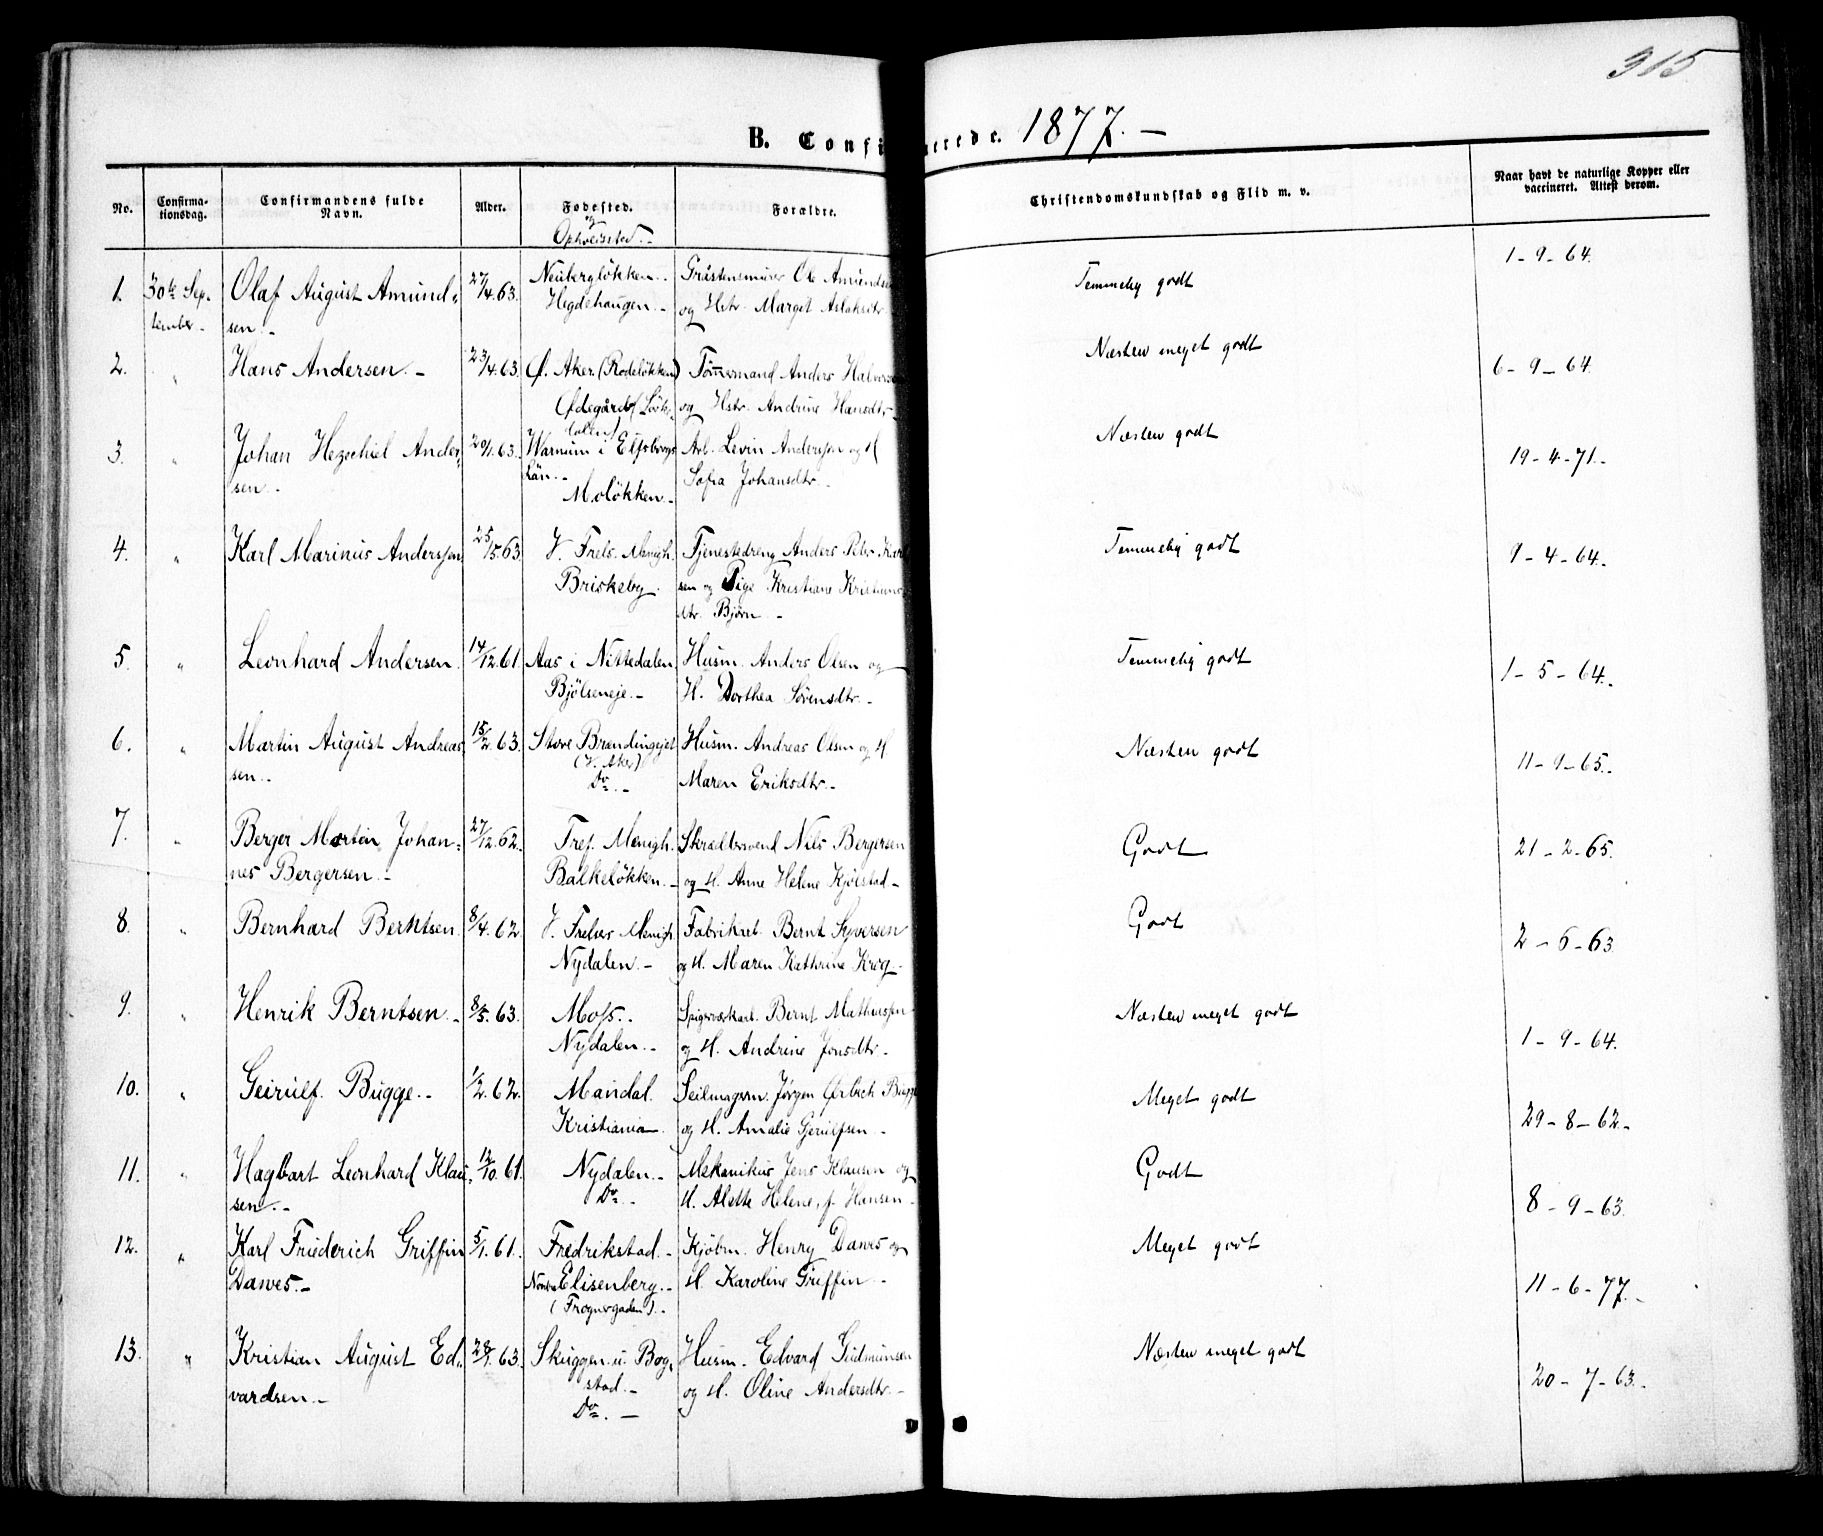 315
B. Confirmerede. 1877. —
No.
Confirma-
tionsdag.
Confirmandens fulde
Navn.
Alder.
Fødested.
og
Opholdssted. -
Forældre.
Christendomskundskab og Flid m. v.
Naar havt de naturlige Kopper eller
vaccineret. Attest derom.
1. 30te Sep- Olaf August Amund- 27/4.63. Neuberglökken. Gråstensmurer Ole Amundsen Temmelig godt 1-9-64.
tember - sen. - Hegdehaugen. - og Hstr. Marget Aslaksdtr.
2. " Hans Andersen. - 23/4.63. Ø. Aker. (Rodeløkken) Tømmermand Anders Halvorsen Næsten meget godt 6-9-64.
Ødegården og Hstr. Andrine Hansdtr.
3. " Johan Hezechiel Ander- 20/1.63. Warnum i Elfsborgs Arb. Levin Andersson og H Næsten godt 19-4-71.-
sen. - Län. - Sofia Johansdtr. -
Moløkken -
4. " Karl Marinus Anderssen 25/5.63. V. Frels. Menigh. Tjenestedreng Anders Peter Karl Temmelig godt 9-4-64.
Briskeby. sen og Pige Kristiane Kristians
dtr. Bjørn -
5. " Leonhard Andersen. 14/12.61. Aas i Nittedalen. Husm. Anders Olsen og Temmelig godt 1-5-64.
Bjølseneje. - H. Dorthea Sørensdtr. -
6. " Martin August Andreas 15/2.63. Store Brændingejet Husm. Andreas Olsen og H Næsten godt 11-9-65.
sen. - (V. Aker) Maren Eriksdtr. -
Do. -
7. " Berger Martin Johan- 27/12.62. Tref. Menigh. Skrædersvend Nils Bergersen Godt 21-2-65.
nes Bergersen. - Balkeløkken. - og H. Anne Helene Kjølstad -
8. " Bernhard Berntsen. 8/4.62. V. Frelsers Menigh. Fabrikarb. Bernt Syversen Godt 2-6-63.
Nydalen. - og H. Maren Kathrine Krog -
9. " Henrik Berntsen. - 8/5.63. Moss. Spigerværkarb. Bernt Mathiessen Næsten meget godt 1-9-64.
Nydalen. - og H. Andrine Jonsdtr. -
10. " Geirulf. Bugge. - 1/2.62. Mandal. Seilmagerm. Jørgen Ørbech Bugge Meget godt 29-8-62.-
Kristiania. og H. Amalie Gjerulfsen -
11. " Hagbart Leonhard Klau- 12/10.61. Nydalen. - Mekanikus Jens Klausen og Godt 8-9-63.
sen. - Do. - H. Alette Helene, f. Hansen -
12. " Karl Friederich Griffin 5/1.61. Fredrikstad. - Kjøbm. Henry Dawes og Meget godt 11-6-77.-
Dawes. - Nordre Elisenberg. - H. Karoline Griffin -
(Frognergaden). -
13. " Kristian August Ed- 28/1.63. Skuggen u. Bog- Husm. Edvard Gudmunsen Næsten meget godt 20-7-63.-
vardsen. - stad. - og H. Oline Andersdtr. -
Do. -